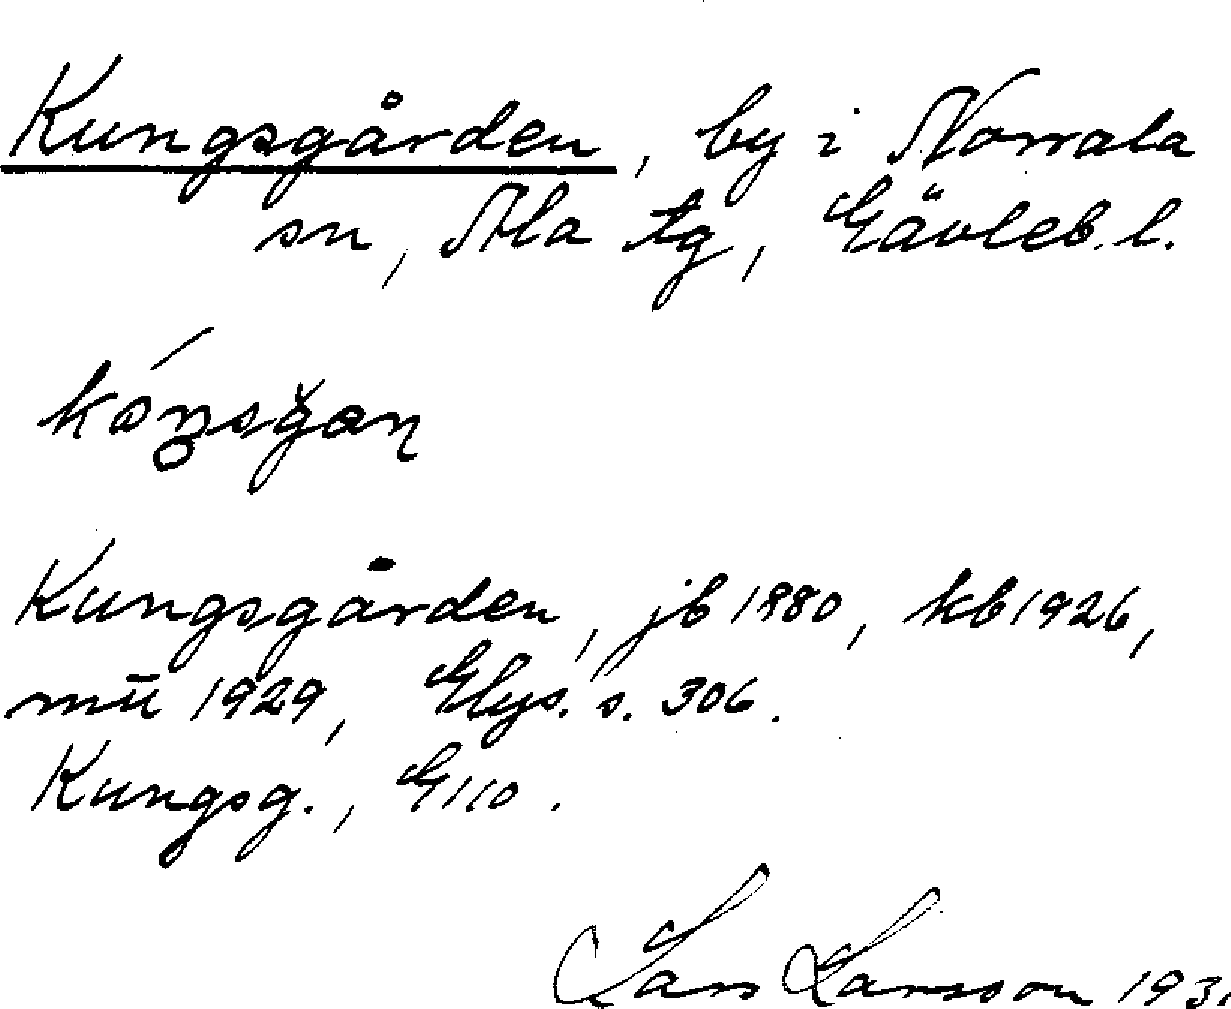 Kungsgården, by i Norrala
sn, Ala tg, Gävleb. l.
Kungsgården, jb 1880, kb 1926,
mü 1929, Glys. s. 306.
Kungsg., G 110.
Lars Larsson 1931